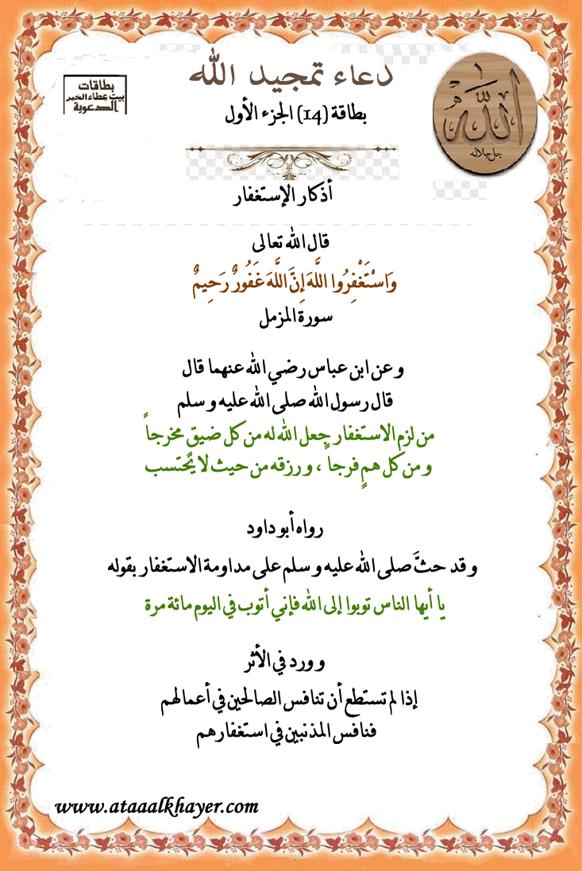 دعاء تمجيد الله
بطاقة (14) الجزء الأول
بطاقات
بيت عطاء الخير
الدعوية
الله
جل جلاله
أذكار الإستغفار
قال الله تعالى
وَاسْتَغْفِرُوا اللَّهَ إِنَّ اللَّهَ غَفُورٌ رَحِيمٌ
سورة المزمل
وعن ابن عباس رضي الله عنهما قال
قال رسول الله صلى الله عليه وسلم
من لزم الاستغفار جعل الله له من كل ضيقٍ مخرجاً
ومن كل همٍ فرجاً ، ورزقه من حيث لا يحتسب
رواه أبو داود
وقد حثَّ صلى الله عليه وسلم على مداومة الاستغفار بقوله
يا أيها الناس توبوا إلى الله فإني أتوب في اليوم مائة مرة
وورد في الأثر
إذا لم تستطع أن تنافس الصالحين في أعمالهم
فنافس المذنبين في استغفارهم
www.ataaalkhayer.com